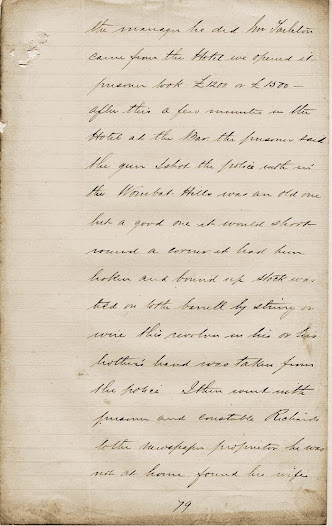 the manager he did Mr Tarleton
came from the Hotel we opened it
prisoner took £1200 or £1500 –
after this a few minutes in the
Hotel at the Bar the prisoner said
the gun I shot the police with in
the Wombat Hills was an old one
but a good one it would shoot
round a corner it had been
broken and bound up stock was
tied on to the barrell by string or
wire this revolver in his or his
brother's hand was taken from
the police I then went with
prisoner and constable Richards
to the newspaper proprietor he was
not at home found his wife
79